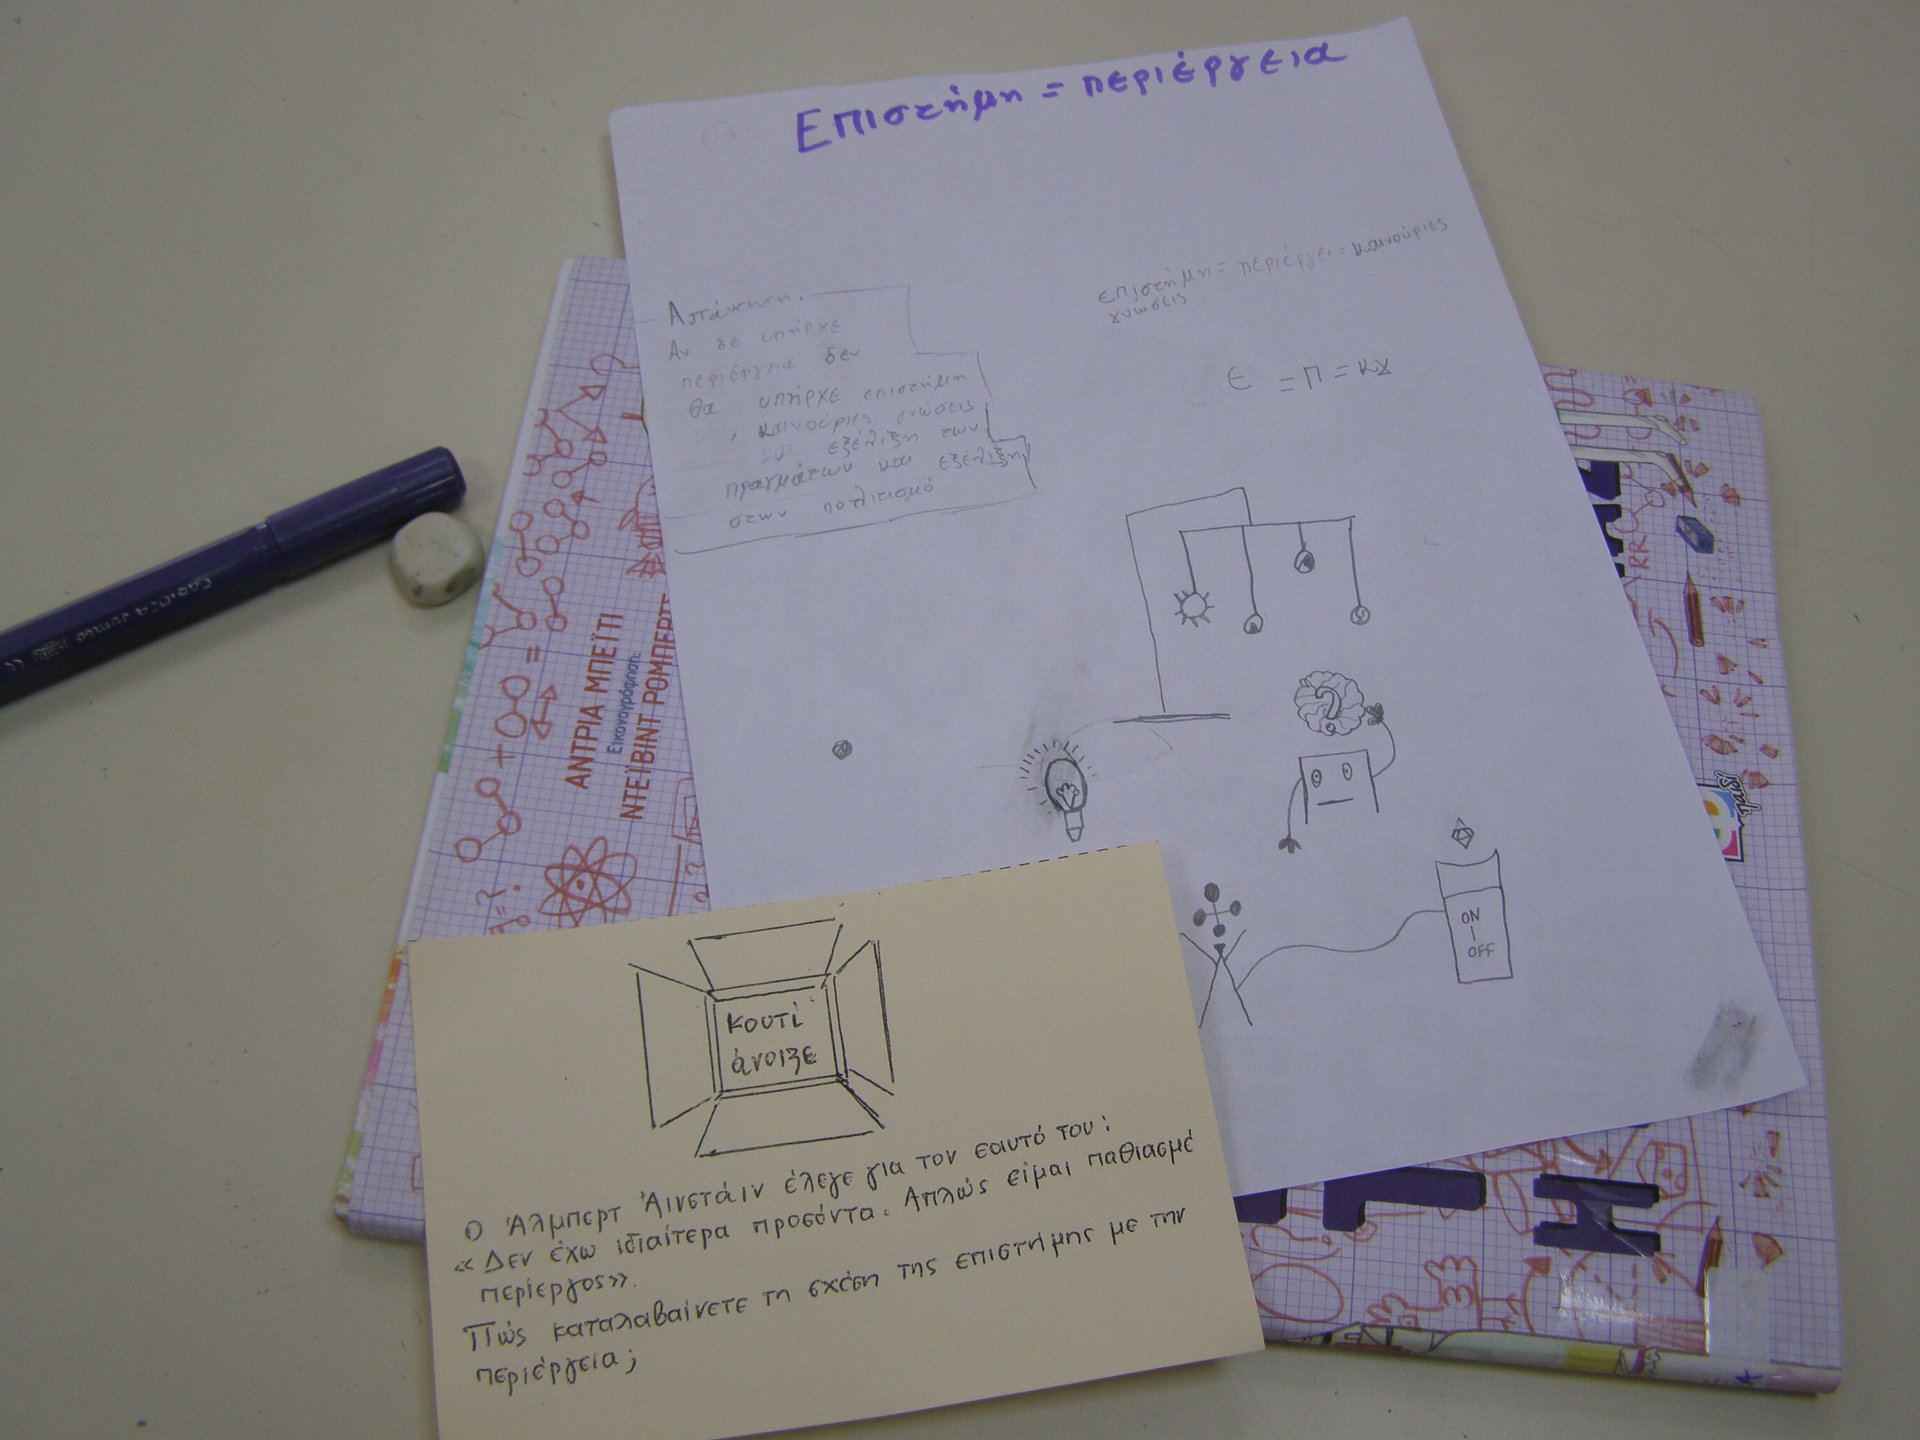 Επιστήμη = περιέργεια
Απάντηση:
Αν δε υπήρχε
περιέργεια δεν
θα υπήρχε επιστήμη
, καινούριες γνώσεις
και εξέλιξη των
πραγμάτων και εξέλιξη
στων πολιτισμό
επιστήμη = περιέργει = καινούριες
γνώσεις
Ε = Π = κγ
?
ON
OFF
ΑΝΤΡΙΑ ΜΠΕΪΤΙ
Εικονογράφηση:
ΝΤΕΪΒΙΝΤ ΡΟΜΠΕΡΤΣ
κουτί
άνοιξε
Ο Άλμπερτ Άινστάιν έλεγε για τον εαυτό του:
«Δεν έχω ιδιαίτερα προσόντα. Απλώς είμαι παθιασμέ
περίεργος».
Πώς καταλαβαίνετε τη σχέση της επιστήμης με την
περιέργεια;